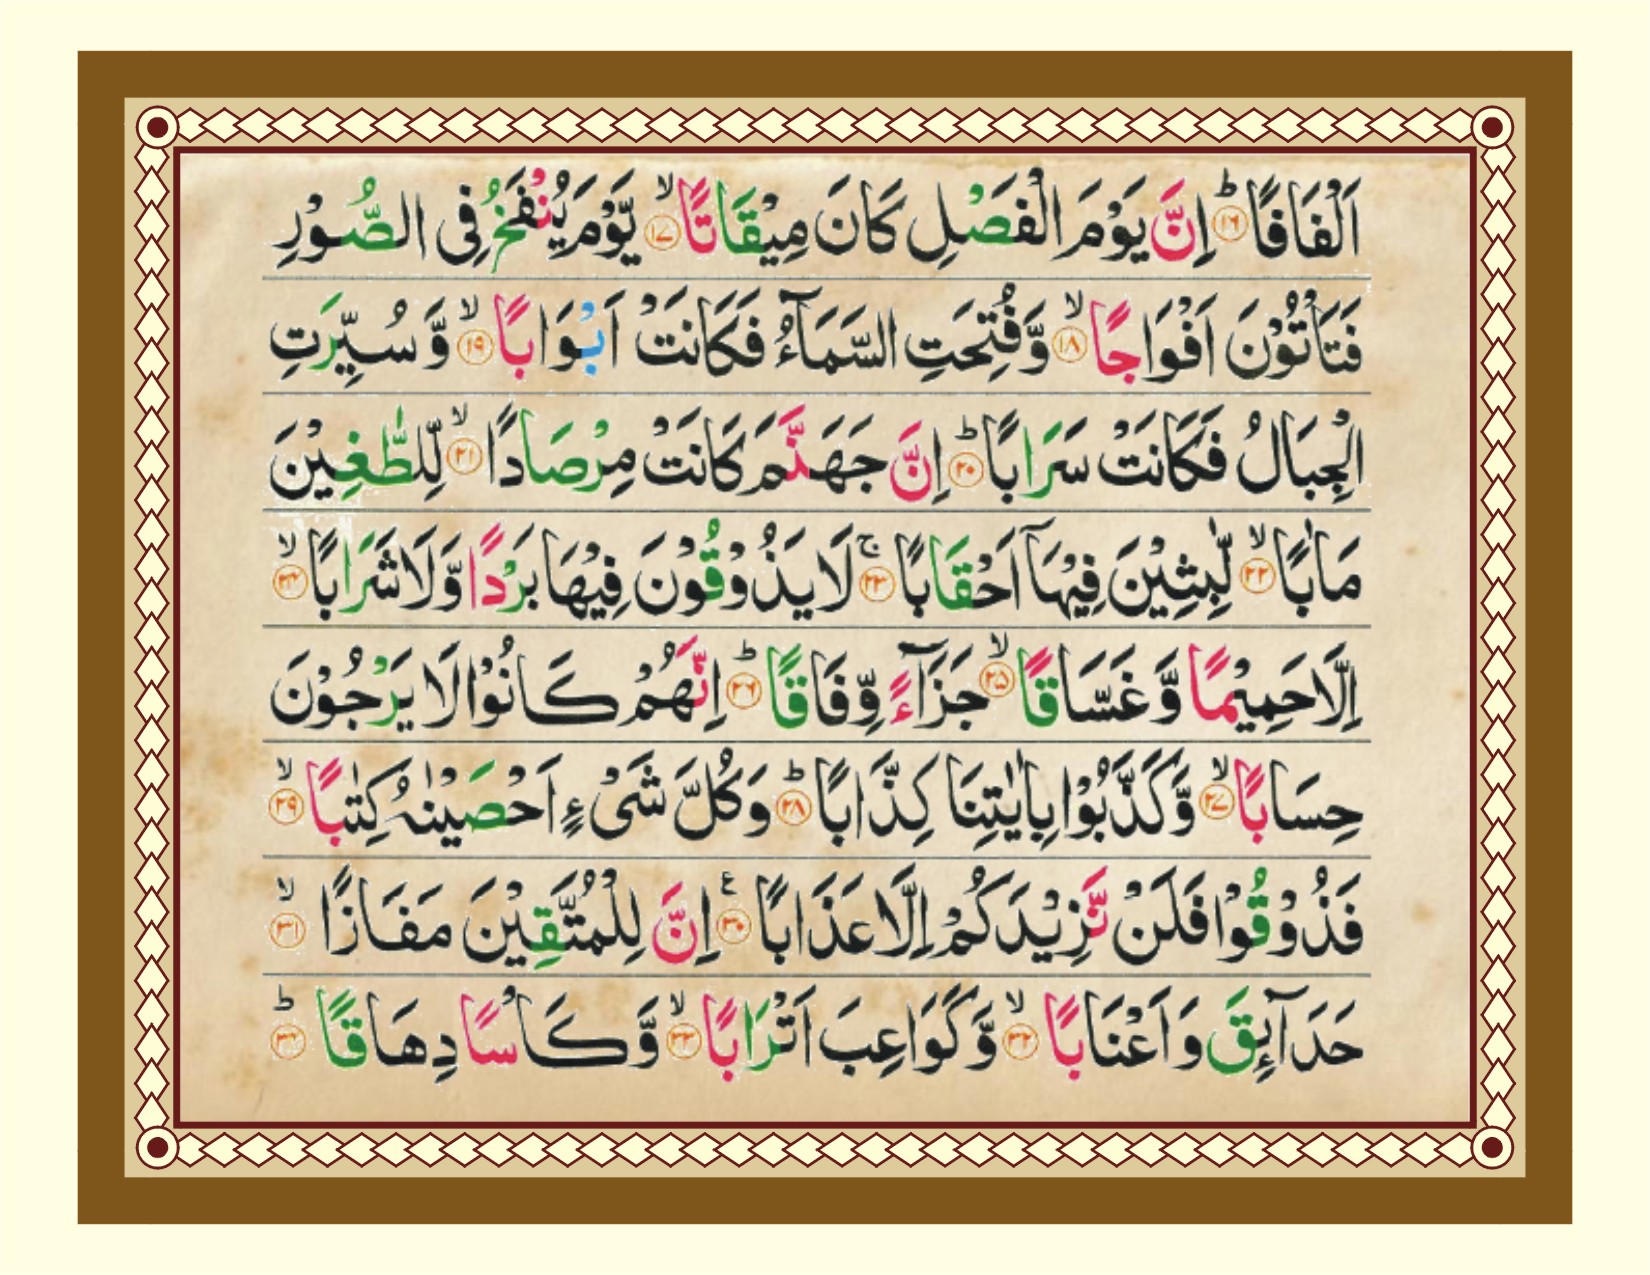 اَلْفَافًا ؕ‏ ﴿۱۶﴾ اِنَّ يَوْمَ الْفَصْلِ كَانَ مِيْقَاتًا ۙ‏ ﴿۱۷﴾ يَّوْمَ يُنْفَخُ فِى الصُّوْرِ
فَتَاْتُوْنَ اَفْوَاجًا ۙ‏ ﴿۱۸﴾ وَّفُتِحَتِ السَّمَآءُ فَكَانَتْ اَبْوَابًا ۙ‏ ﴿۱۹﴾ وَّ سُيِّرَتِ
الْجِبَالُ فَكَانَتْ سَرَابًا ؕ‏ ﴿۲۰﴾ اِنَّ جَهَنَّمَ كَانَتْ مِرْصَادًا ۙ‏ ﴿۲۱﴾ لِّلطّٰغِيْنَ
مَاٰبًا ۙ‏ ﴿۲۲﴾ لّٰبِثِيْنَ فِيْهَاۤ اَحْقَابًا ۚ‏ ﴿۲۳﴾ لَا يَذُوْقُوْنَ فِيْهَا بَرْدًا وَّلَا شَرَابًا ۙ‏ ﴿۲۴﴾
اِلَّا حَمِيْمًا وَّ غَسَّاقًا ۙ‏ ﴿۲۵﴾ جَزَآءً وِّفَاقًا ؕ‏ ﴿۲۶﴾ اِنَّهُمْ كَانُوْا لَا يَرْجُوْنَ
حِسَابًا ۙ‏ ﴿۲۷﴾ وَّكَذَّبُوْا بِاٰيٰتِنَا كِذَّابًا ؕ‏ ﴿۲۸﴾ وَكُلَّ شَىْءٍ اَحْصَيْنٰهُ كِتٰبًا ۙ‏ ﴿۲۹﴾
فَذُوْقُوْا فَلَنْ نَّزِيْدَكُمْ اِلَّا عَذَابًا ﴿۳۰﴾ ع اِنَّ لِلْمُتَّقِيْنَ مَفَازًا ۙ‏ ﴿۳۱﴾
حَدَآئِقَ وَ اَعْنَابًا ۙ‏ ﴿۳۲﴾ وَّكَوَاعِبَ اَتْرَابًا ۙ‏ ﴿۳۳﴾ وَّكَاْسًا دِهَاقًا ؕ‏ ﴿۳۴﴾